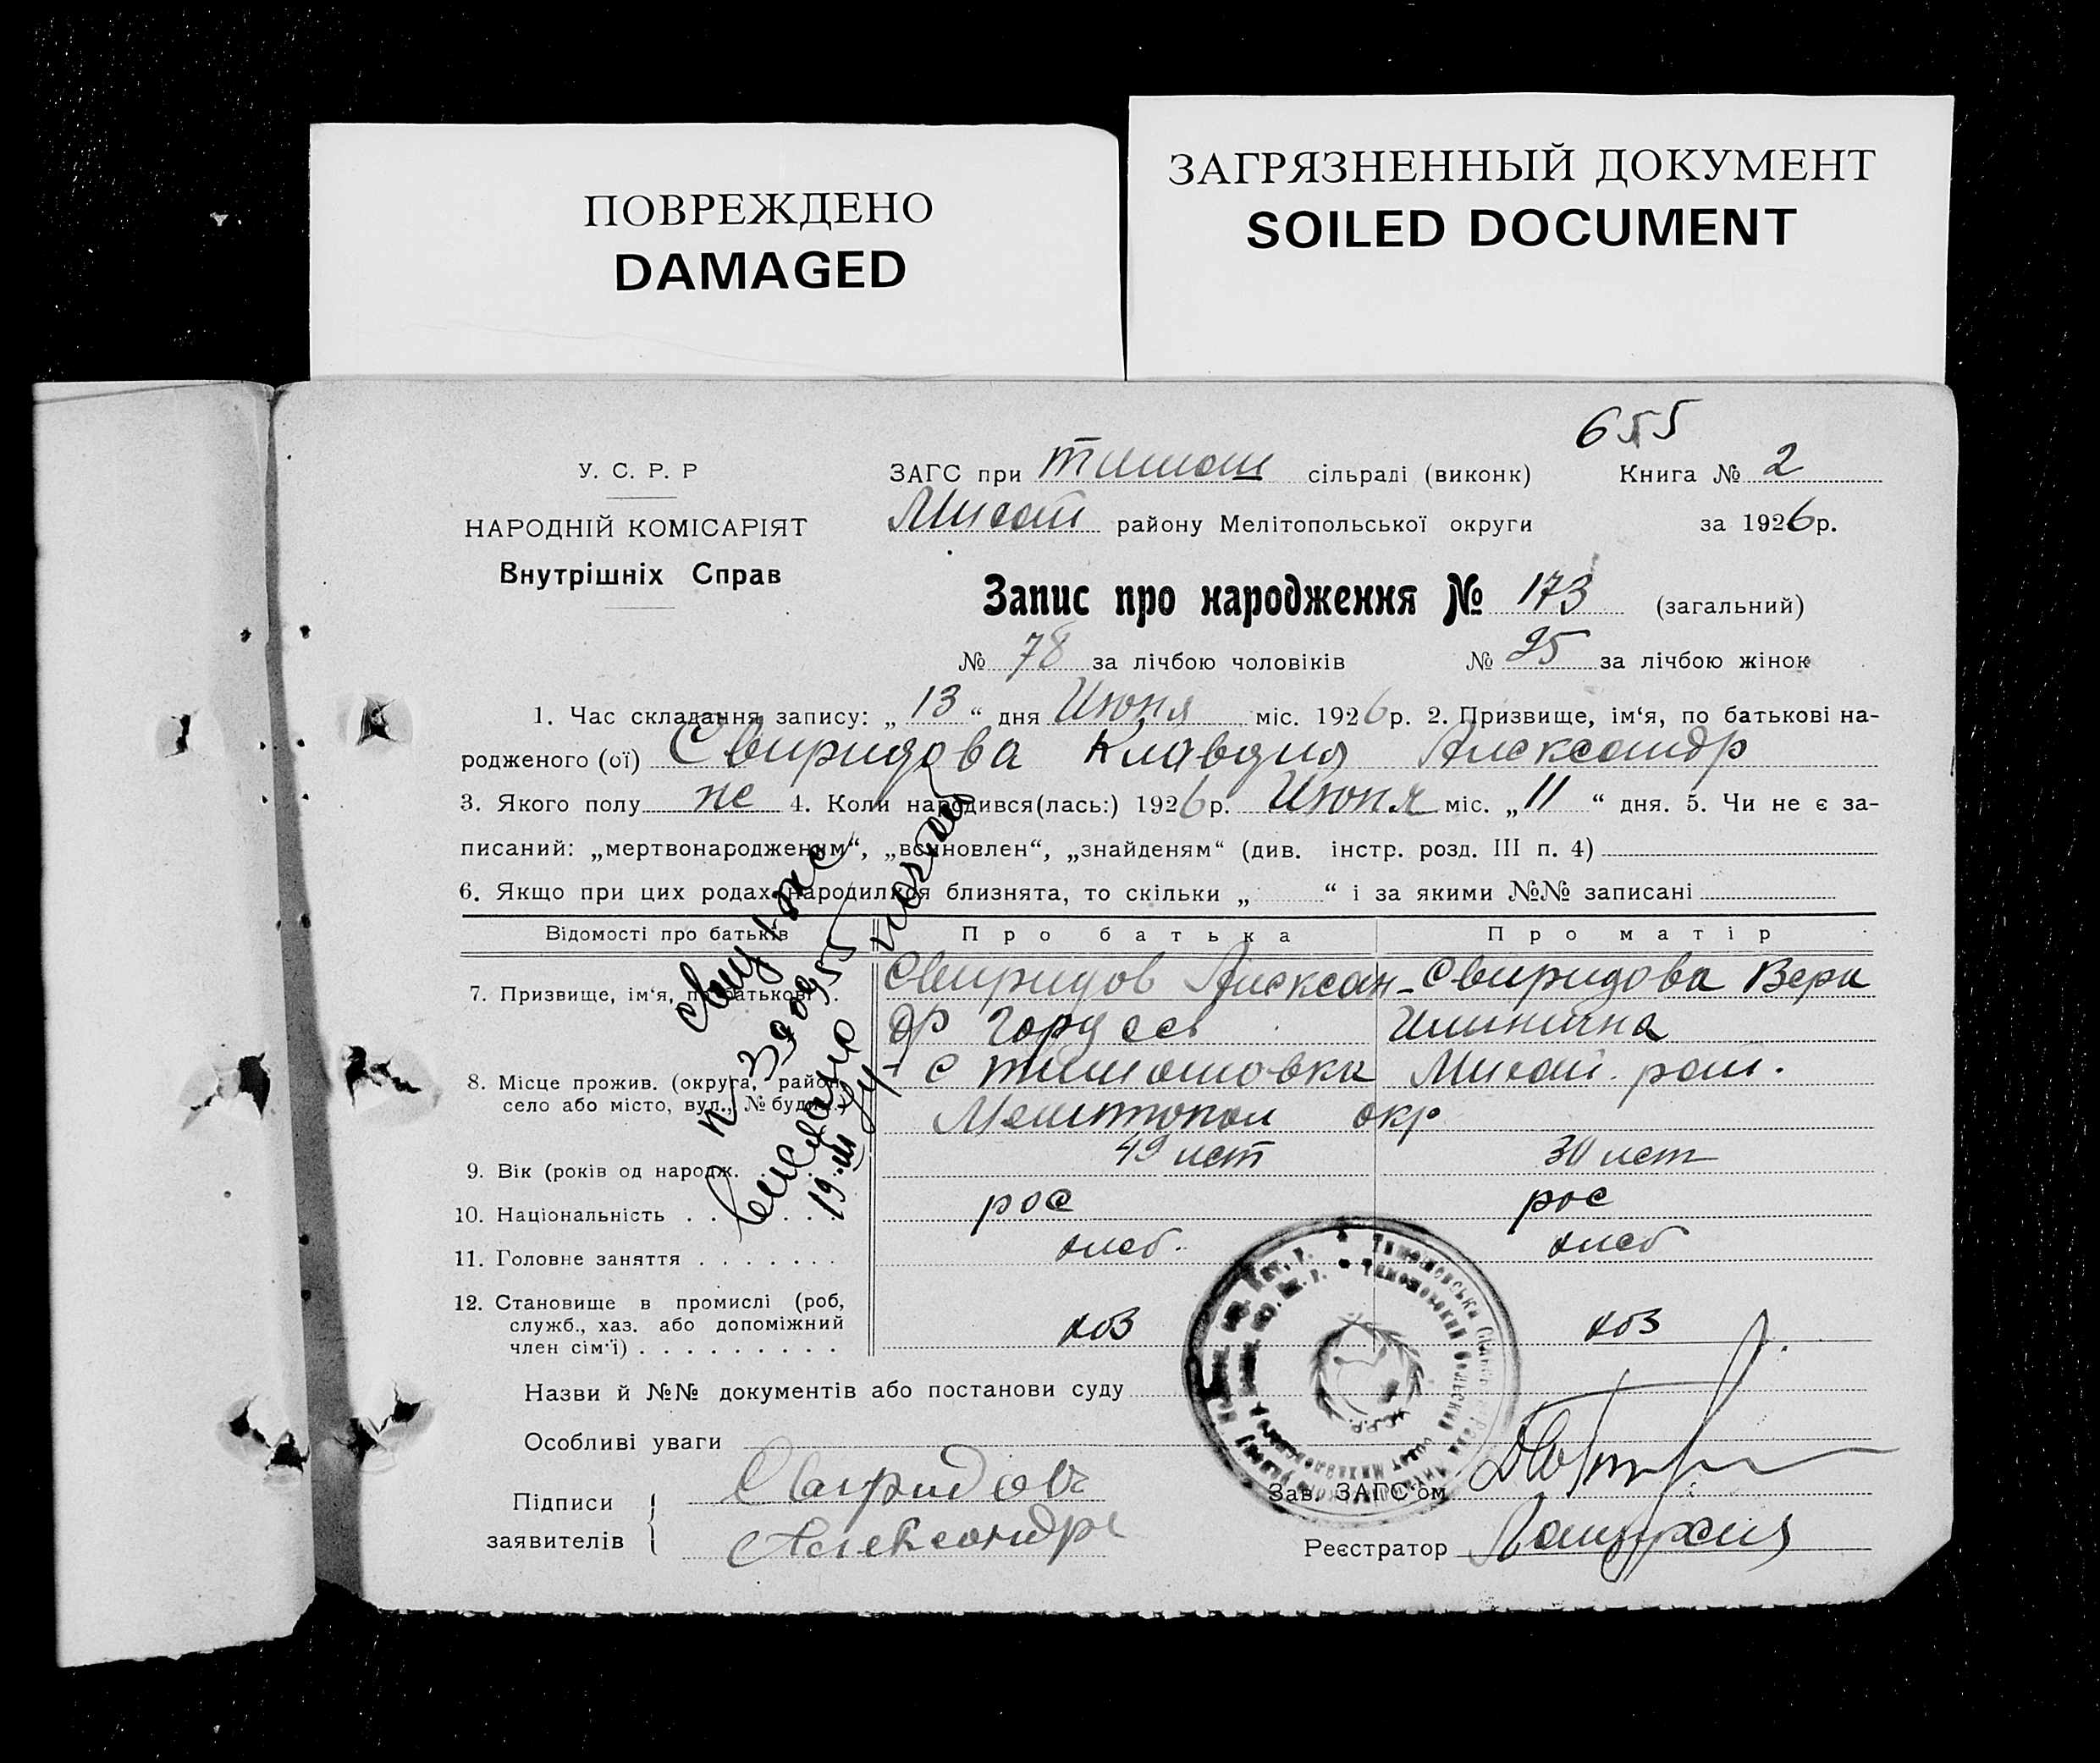 ПОВРЕЖДЕНО
DAMAGED
ЗАГРЯЗНЕННЫЙ ДОКУМЕНТ
SOILED DOCUMENT
655
У. С. Р. Р
НАРОДНІЙ КОМІСАРІЯТ
Внутрішніх Справ
ЗАГС при Тимош сільраді (виконк) Книга № 2
Михай району Мелітопольської округи за 1926р.
Запис про народження № 173 (загальний)
№ 78 за лічбою чоловіків № 95 за лічбою жінок
1. Час складання запису: „ 13 “ дня Июня міс. 1926р. 2. Призвище, ім‘я, по батькові на-
родженого (ої) Свиридова Клавдия Александр
3. Якого полу же 4. Коли народився(лась:) 1926р. Июня міс. „ 11 “ дня. 5. Чи не є за-
писаний: „мертвонародженим“, „всиновлен“, „знайденям“ (див. інстр. розд. III п. 4)
6. Якщо при цих родах народилися близнята, то скільки „ “ і за якими №№ записані
Відомості про батьків Про батька Про матір
7. Призвище, ім‘я, по батькові . Свиридов Алексан- Свиридова Вера
др Гордеев Илинична
8. Місце прожив. (округа, район, с Тимошовка Михай. рай.
село або місто, вул., № будин.) Мелитопол окр
9. Вік (років од народж. 49 лет 30 лет
10. Національність рос рос
11. Головне заняття хлеб. хлеб
12. Становище в промислі (роб,
служб., хаз. або допоміжний хоз хоз
член сім‘ї)
Назви й №№ документів або постанови суду
Особливі уваги
Підписи Свиридов
заявителів Александр
Зав. ЗАГС‘ом
Реєстратор